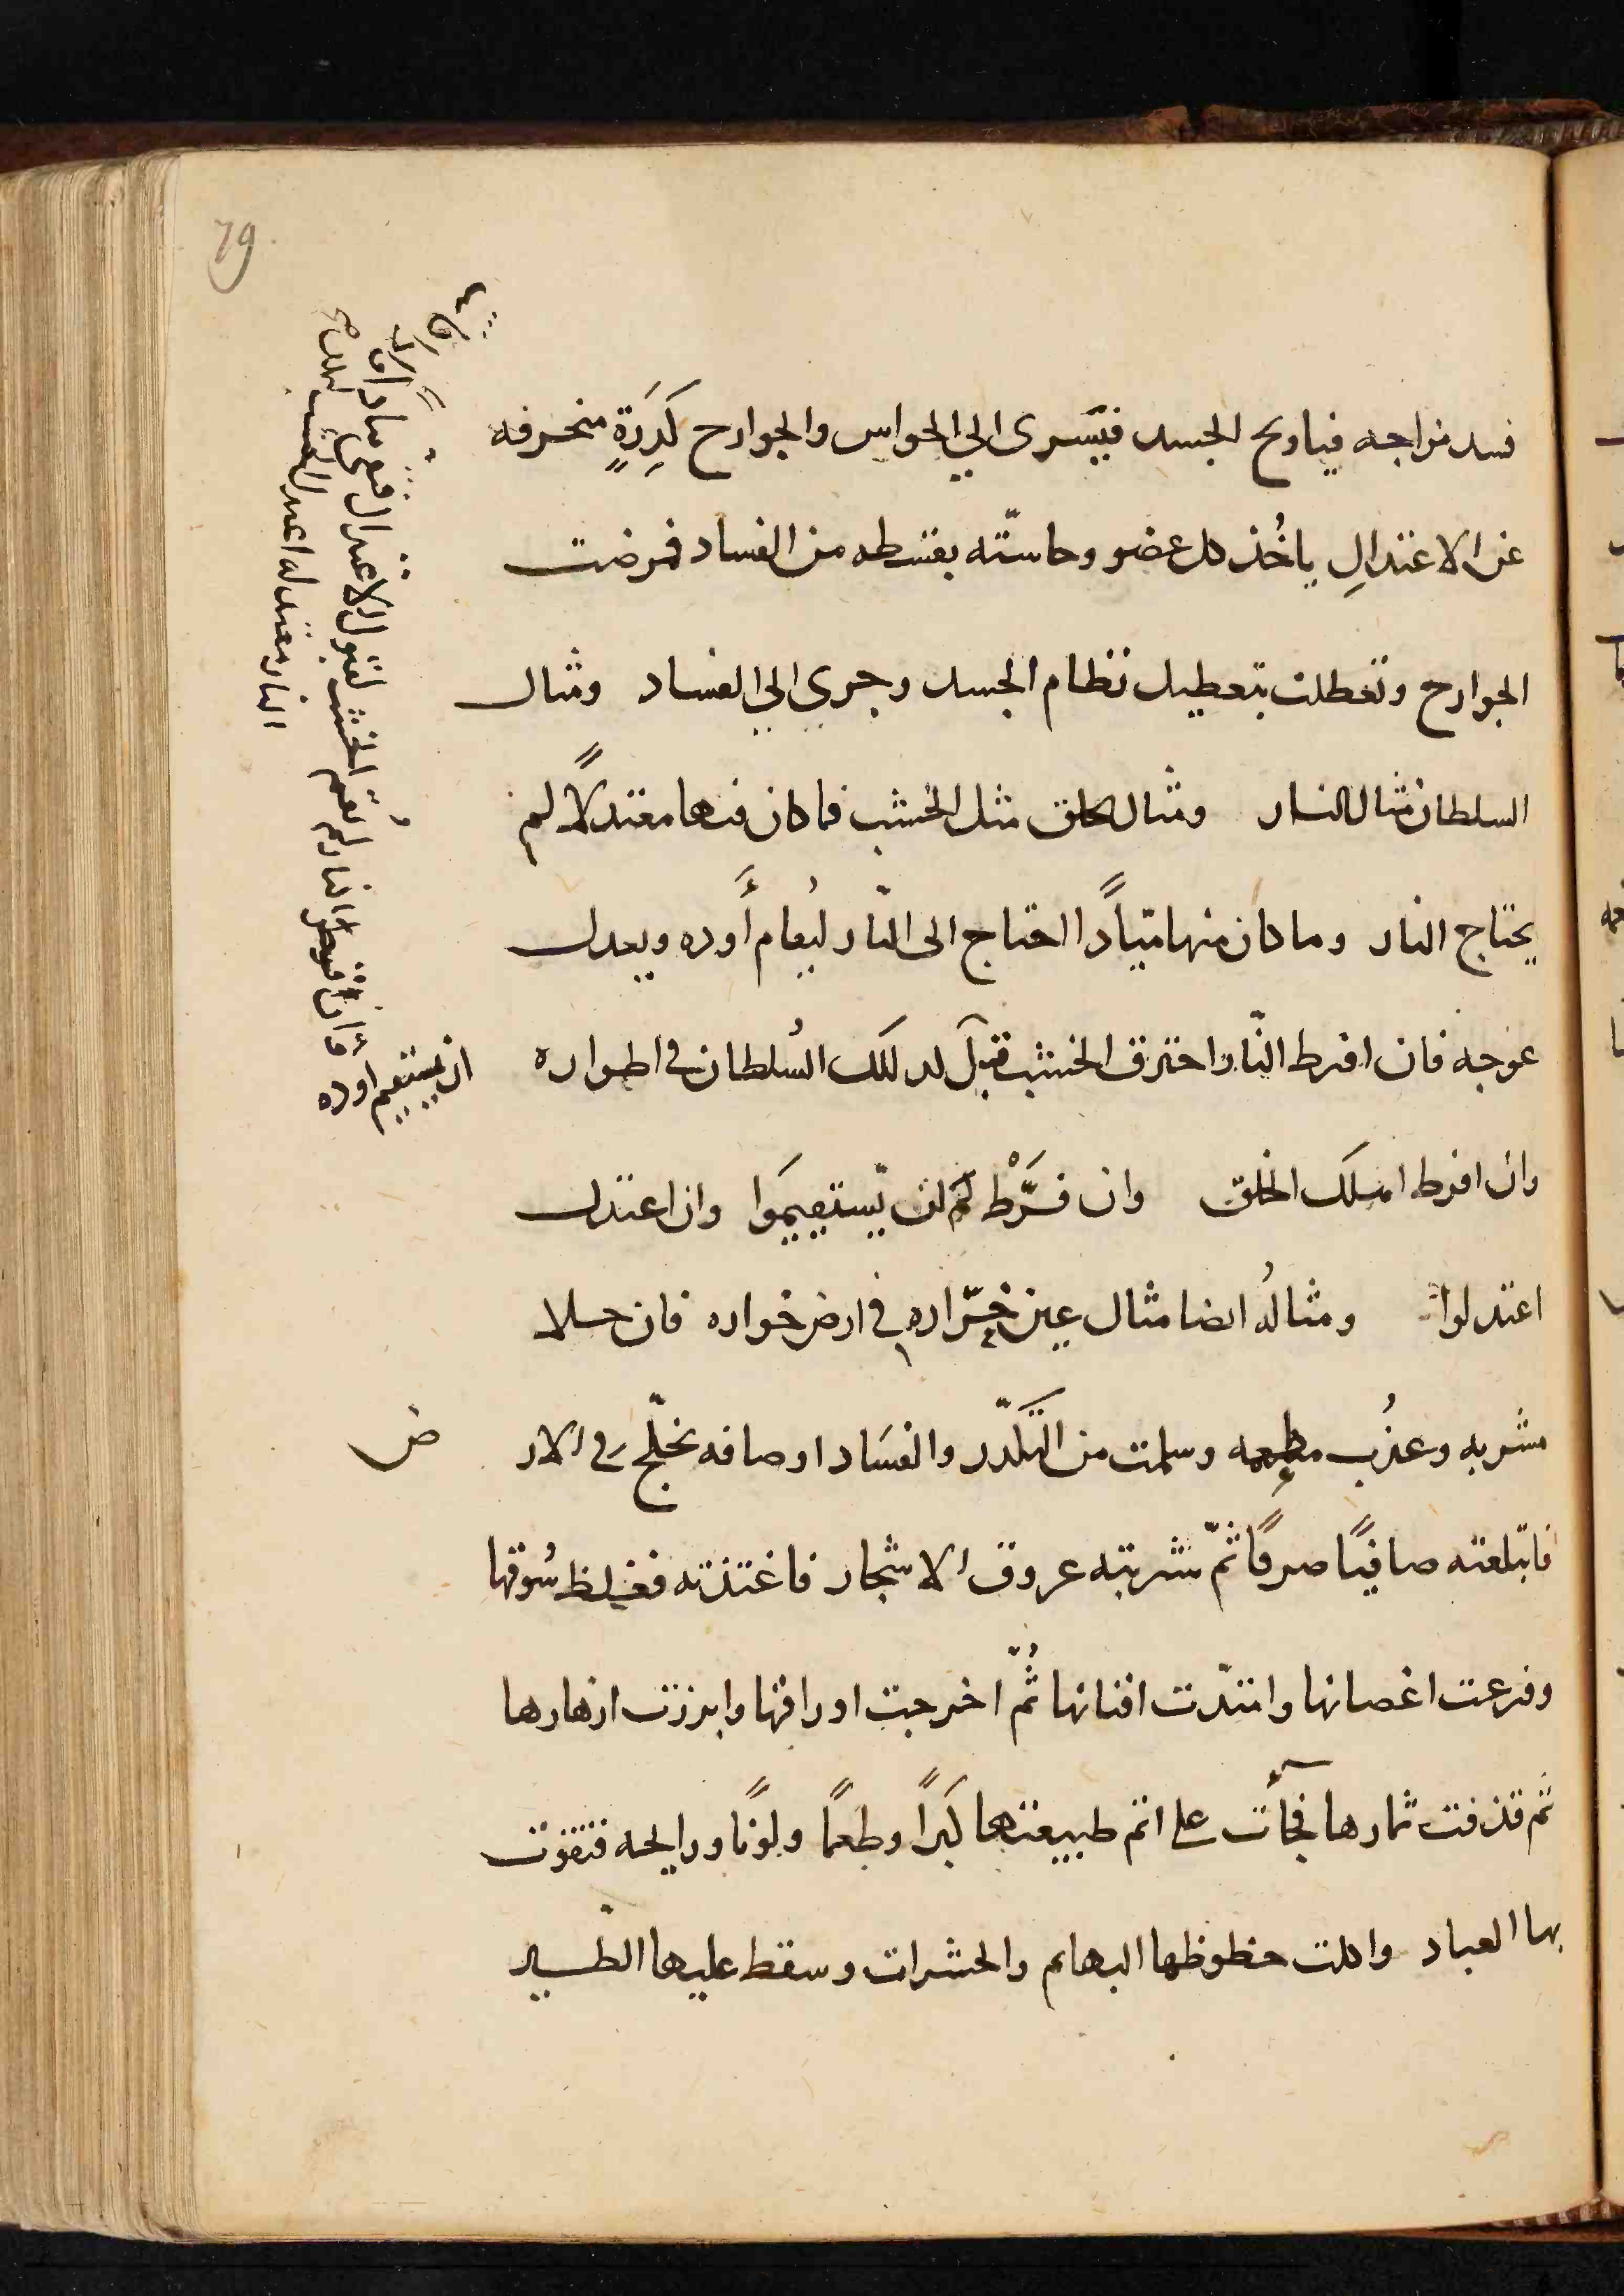 79
فسد مزاجه فياويح الجسد فيسرى الي الحواس والجوارح كَدِرَةٍ منحرفه
عن الاعتدالِ ياخُذ كل عضو وحاسّته بقسطه من الفساد فمرضت
الجوارح وتعطلت بتعطيل نظام الجسد وجرى الي الفساد ومثال
السلطان مثال النار ومثال الخلق مثل الخشب فما كان منها معتدلًا لم
يحتاج النار وما كان منها ميّادًا احتاج الى النّار ليُقام أَوده ويعدل
عوجه فان افرط النّار احترق الخشب قبل كذلك السُلطان في اطواره
ان يستقيم اوده
وان افرط اهلك الخلق وان فرَّطْ لم يستقيموا وان اعتدل
اعتدلوا ومثالُه ايضا مثال عين خرّاره في ارض خواره فان حلا
مشربه وعذُب مطعمه وسلمت من التكدّر والفسَاد اوصافه تخلّج في الار
ض
فابتلعته صافيًا صرفًا ثمّ شربته عروق الاشجار فاغتذته فغلظ سُوقها
وفرعت اغصانها وامتدّت افنانها ثُمّ اخرجت اوراقها وابرزت ازهارها
ثم قذفت ثمارها فجآءت على اتم طبيعتها كبَرًا وطعمًا ولونًا ورايحه فتقوت
بها العباد واكلت حظوظها البهايم والحشرات وسقط عليها الطير